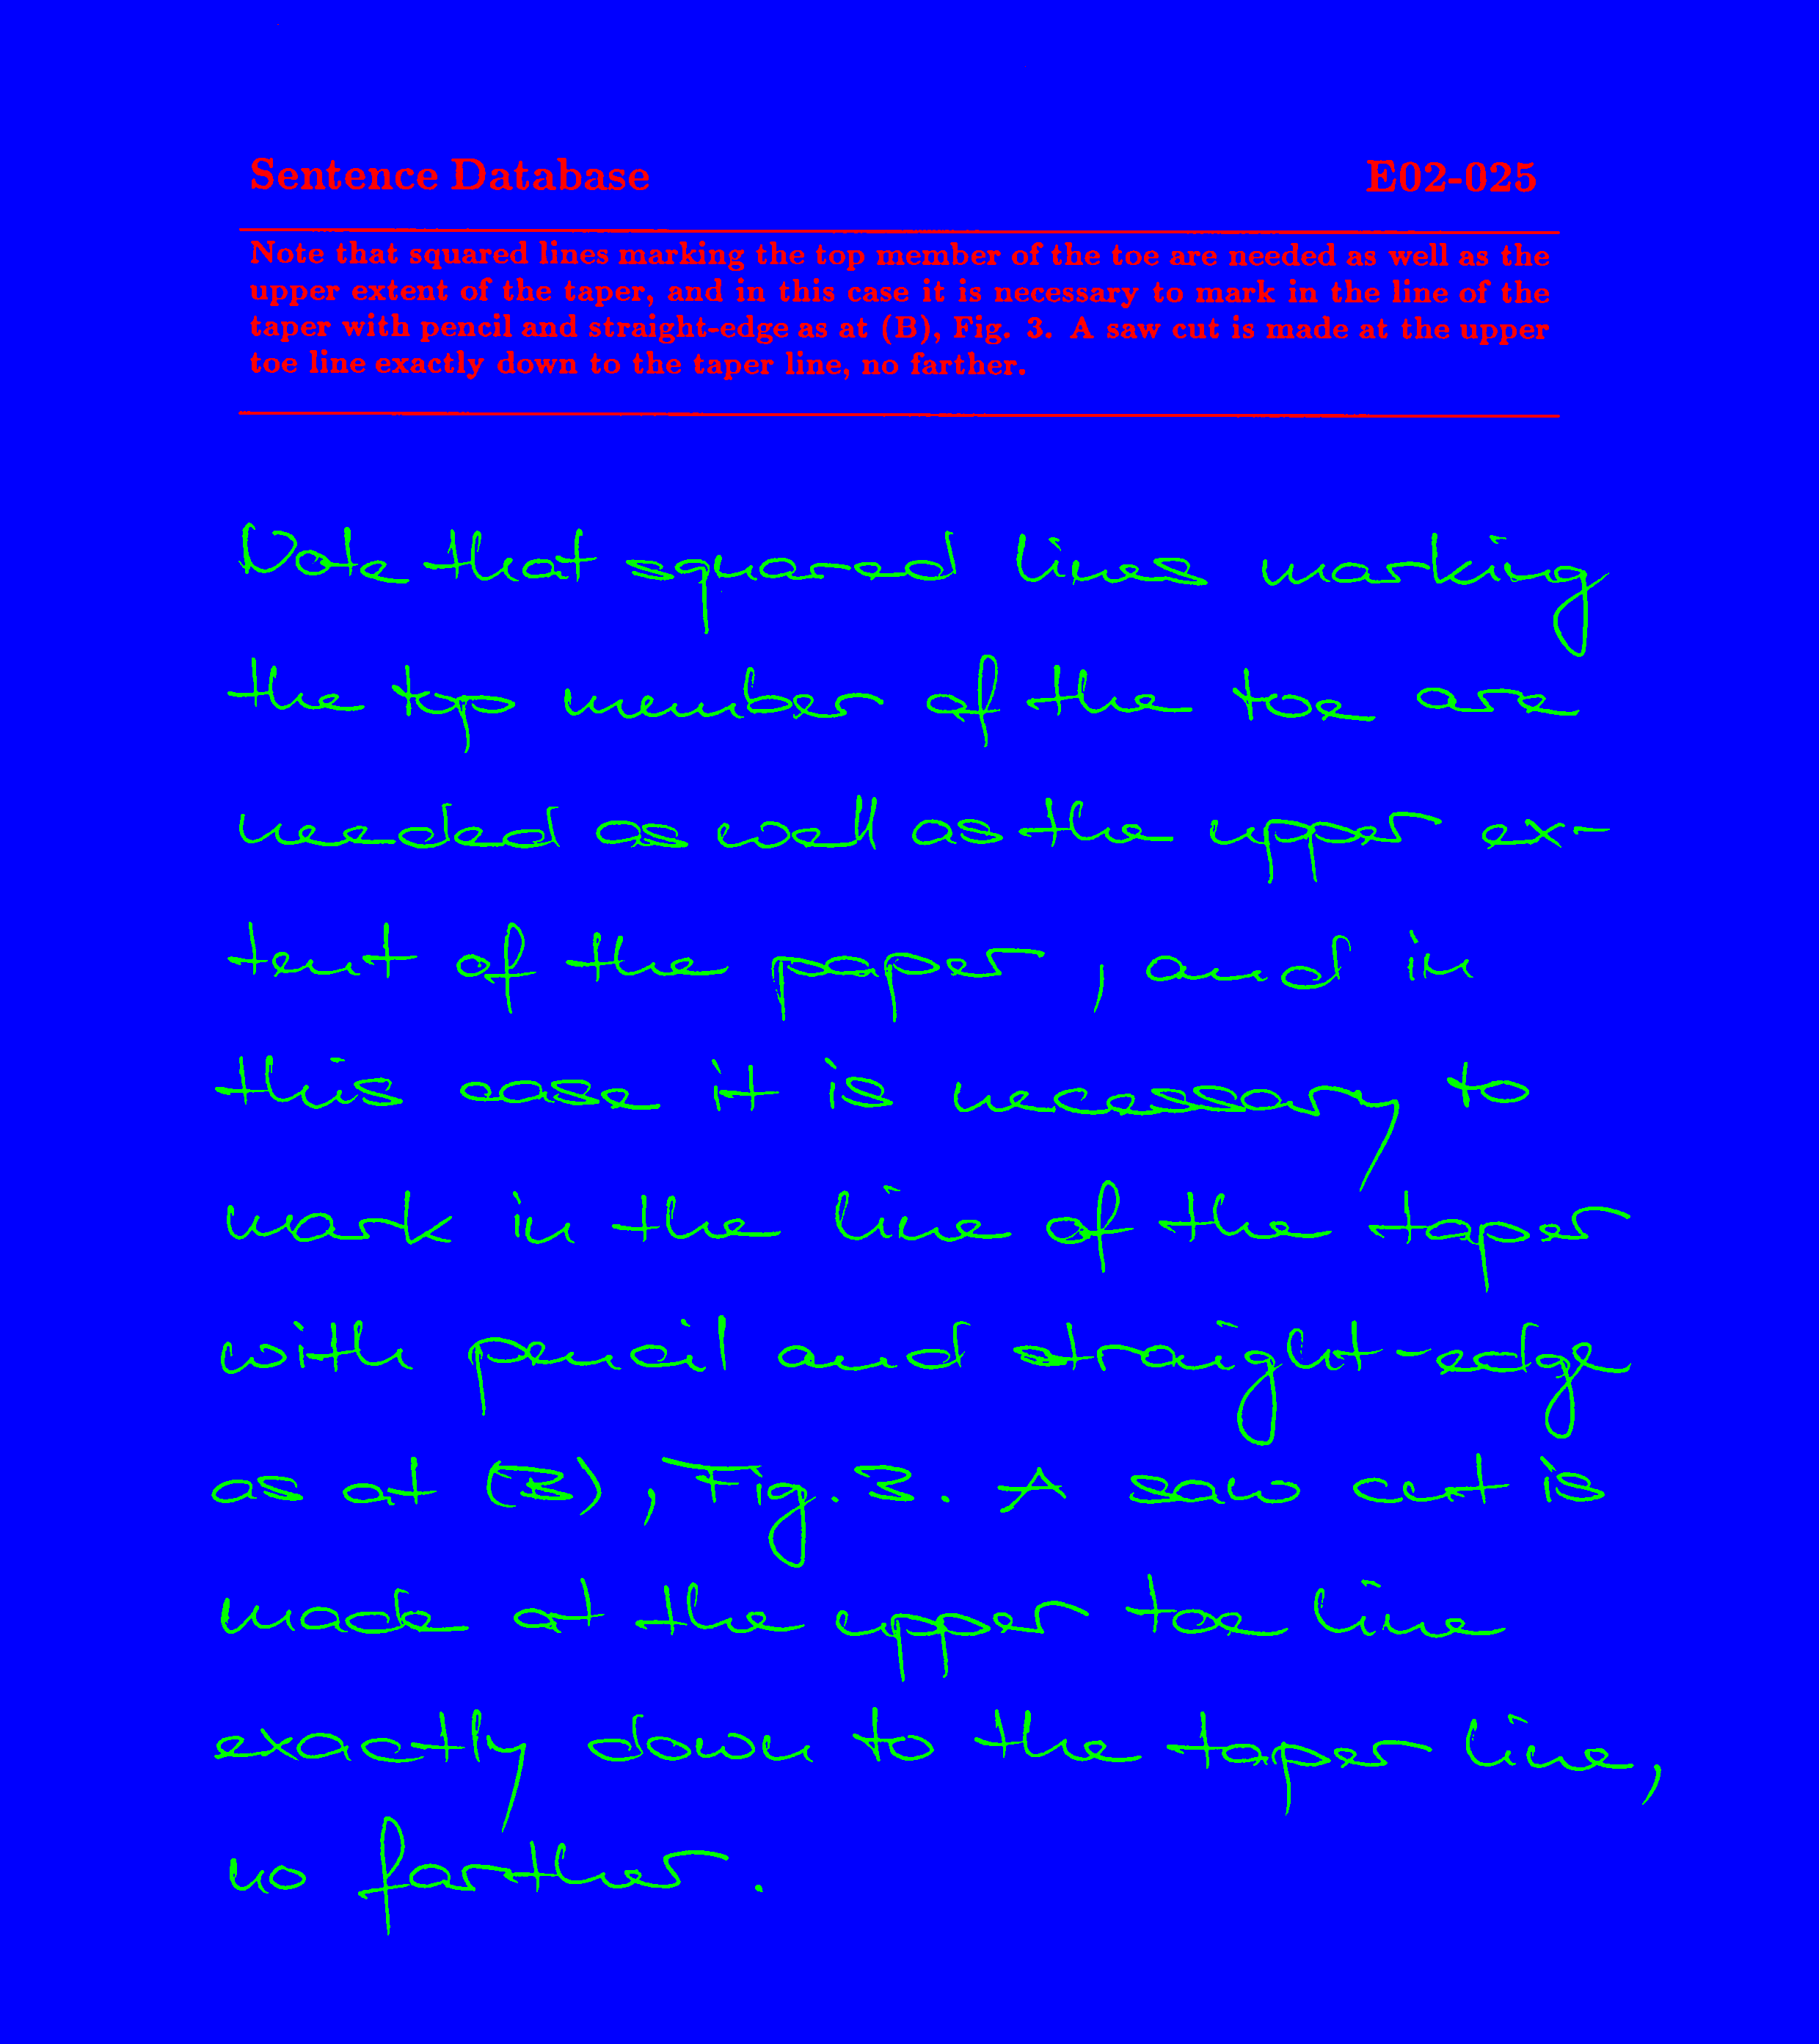 Sentence Database E02-025
Note that squared lines marking the top member of the toe are needed as well as the
upper extent of the taper, and in this case it is necessary to mark in the line of the
taper with pencil and straight-edge as at (B), Fig. 3. A saw cut is made at the upper
toe line exactly down to the taper line, no farther.
Note that squared lines marking
the top member of the toe are
needed as well as the upper ex-
tent of the paper, and in
this case it is necessary to
mark in the line of the taper
with pencil and straight-edge
as at (B), Fig. 3. A saw cut is
made at the upper toe line
exactly down to the taper line,
no farther.